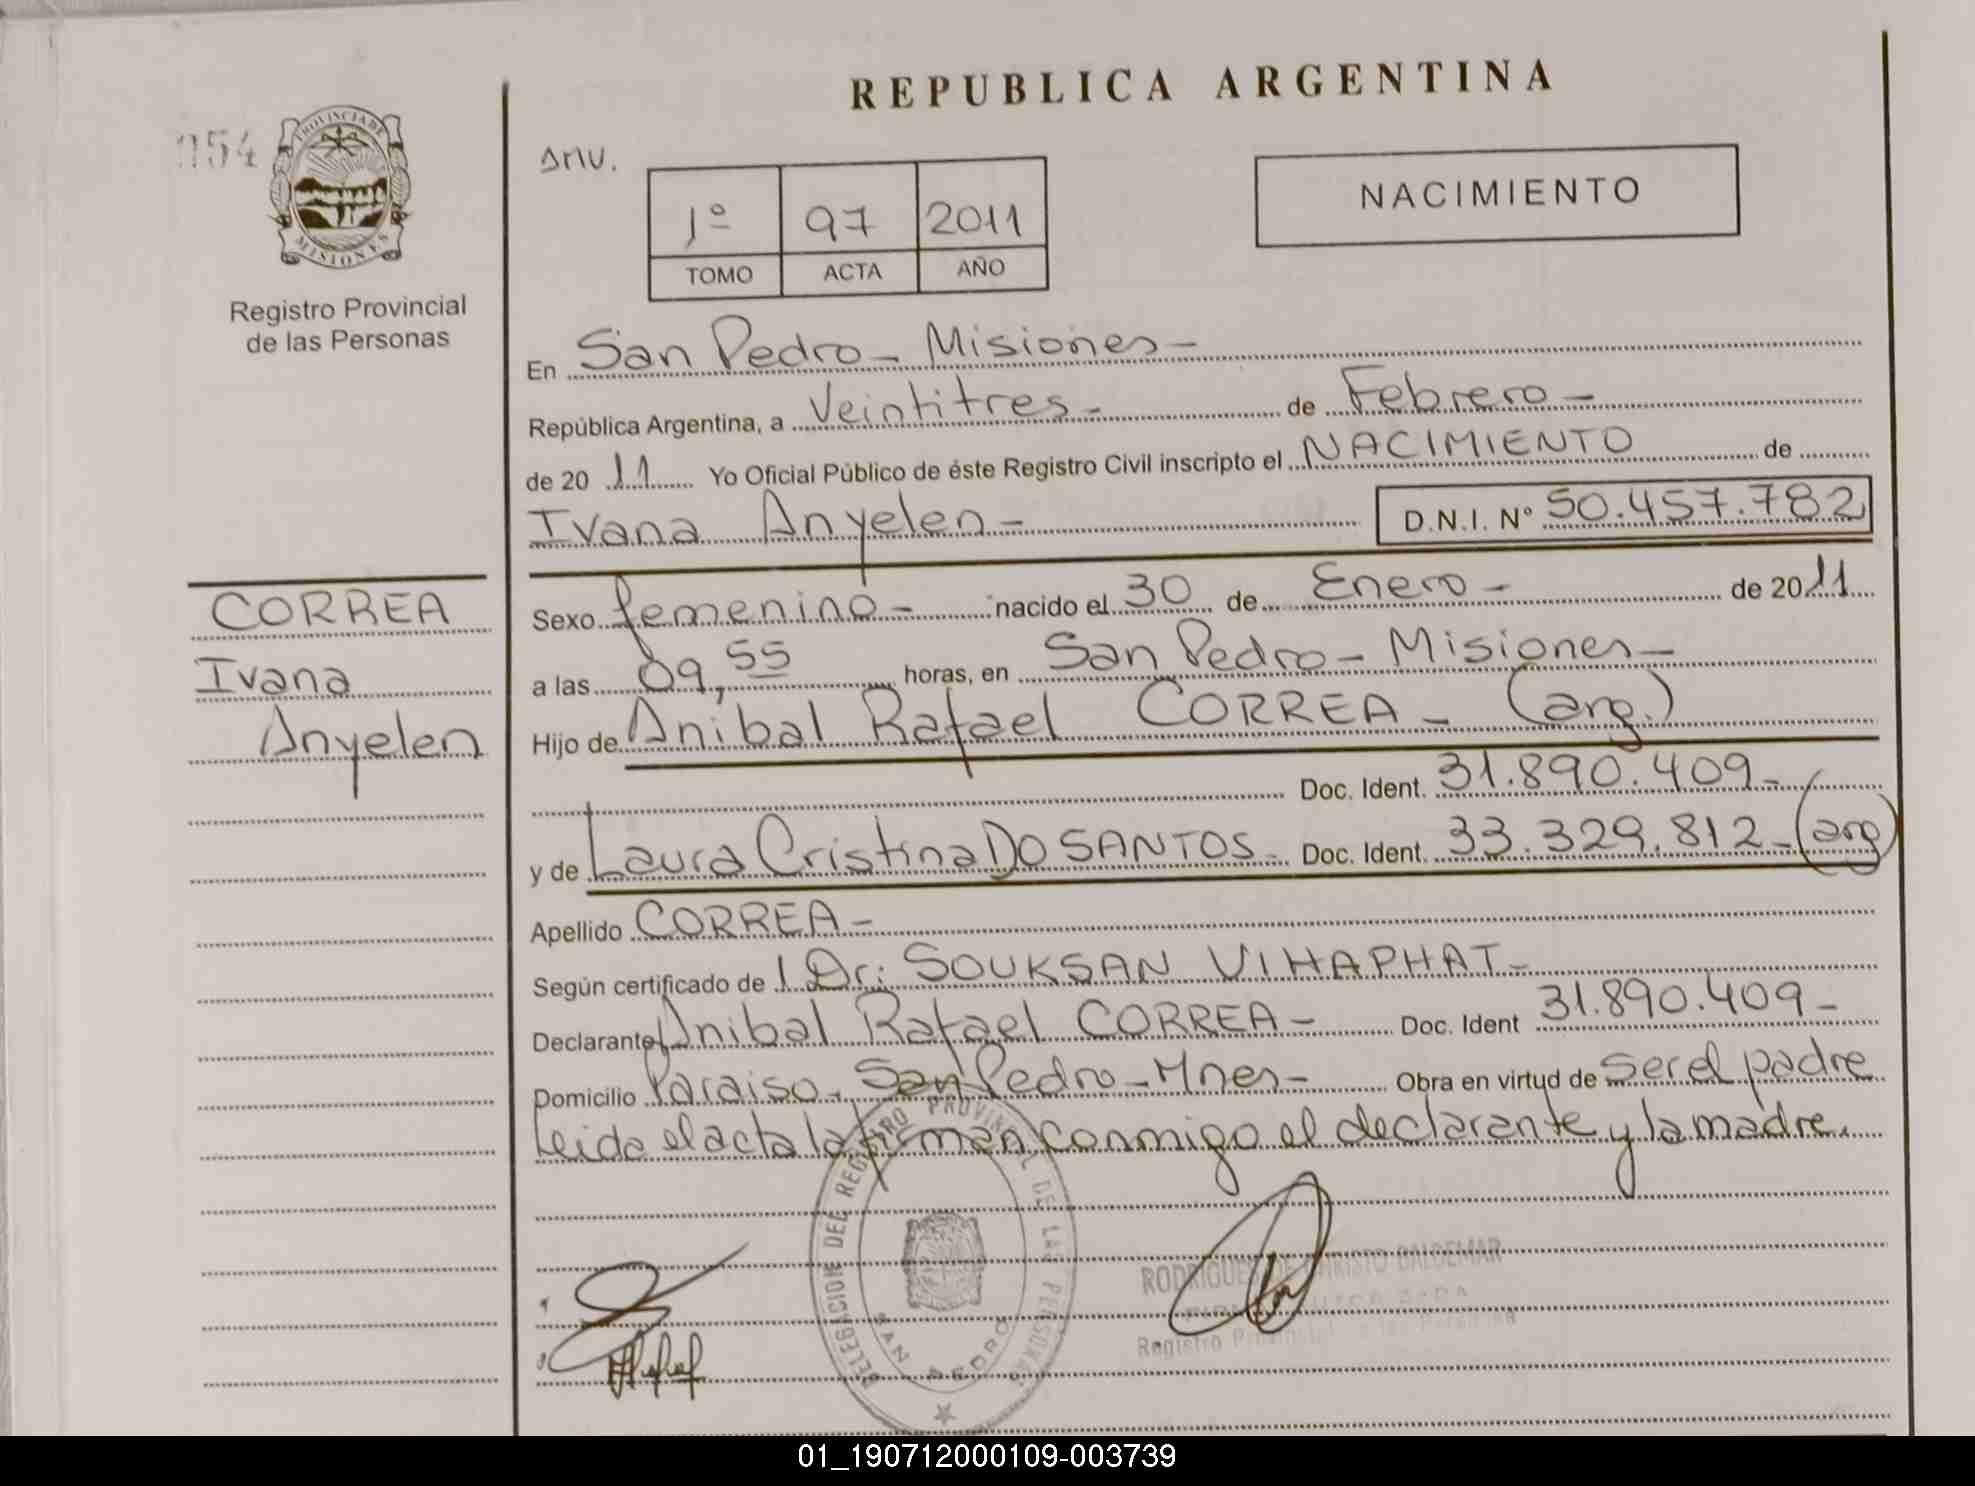 REPUBLICA ARGENTINA
054
PROVINCIA DE
MISIONES
Registro Provincial
de las Personas
1º 97 2011
TOMO ACTA AÑO
NACIMIENTO
En San Pedro - Misiones -
República Argentina, a Veintitres - de Febrero -
de 20 11 Yo Oficial Público de éste Registro Civil inscripto el NACIMIENTO de
Ivana Anyelen - D.N.I. Nº 50.457.782
CORREA
Ivana
Anyelen
Sexo femenino - nacido el 30 de Enero - de 2011
a las 09,55 horas, en San Pedro - Misiones -
Hijo de Anibal Rafael CORREA - (arg.)
Doc. Ident. 31.890.409 -
y de Laura Cristina DO SANTOS - Doc. Ident. 33.329.812 - (arg)
Apellido CORREA -
Según certificado de Dr: SOUKSAN VIHAPHAT -
Declarante Anibal Rafael CORREA - Doc. Ident 31.890.409 -
Domicilio Paraiso - San Pedro - Mnes - Obra en virtud de ser el padre
leida el acta la firman conmigo el declarante y la madre.
DELEGACION DEL REGISTRO PROVINCIAL DE LAS PERSONAS
SAN PEDRO
RODRIGUES DE DALGEMAR
Registro Provincial de las Personas
01_190712000109-003739